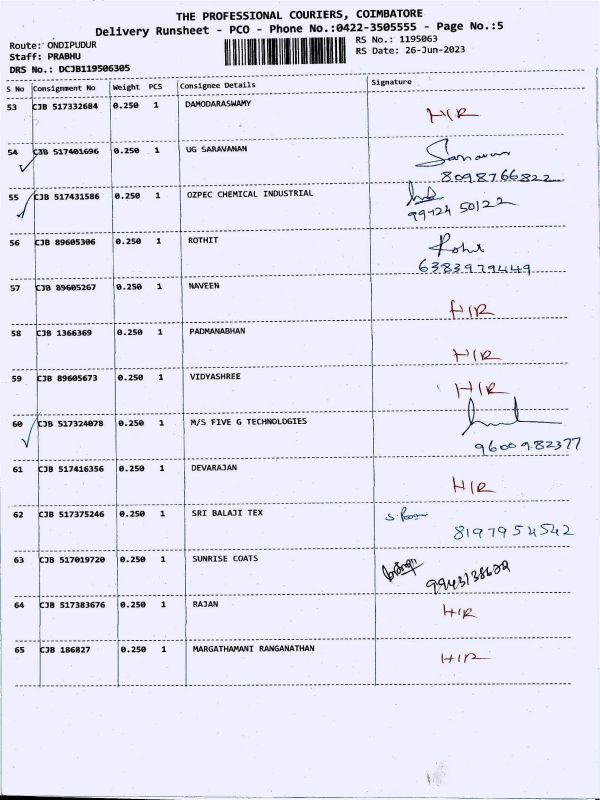 THE PROFESSIONAL COURIERS, COIMBATORE
Delivery Runsheet - PCO - Phone No.:0422-3505555 - Page No.:5
Route: ONDIPUDUR RS No.: 1195063
Staff: PRABHU RS Date: 26-Jun-2023
DRS No.: DCJB119506305
S No Consignment No Weight PCS Consignee Details Signature
53 CJB 517332684 0.250 1 DAMODARASWAMY H/R
54 CJB 517401696 0.250 1 UG SARAVANAN Saravanan
8098766822
55 CJB 517431586 0.250 1 OZPEC CHEMICAL INDUSTRIAL
99424 50122
56 CJB 89605306 0.250 1 ROTHIT Rohit
6383979449
57 CJB 89605267 0.250 1 NAVEEN H/R
58 CJB 1366369 0.250 1 PADMANABHAN H/R
59 CJB 89605673 0.250 1 VIDYASHREE H/R
60 CJB 517324078 0.250 1 M/S FIVE G TECHNOLOGIES
9600982377
61 CJB 517416356 0.250 1 DEVARAJAN H/R
62 CJB 517375246 0.250 1 SRI BALAJI TEX
8197954542
63 CJB 517019720 0.250 1 SUNRISE COATS
64 CJB 517383676 0.250 1 RAJAN H/R
65 CJB 186827 0.250 1 MARGATHAMANI RANGANATHAN H/R